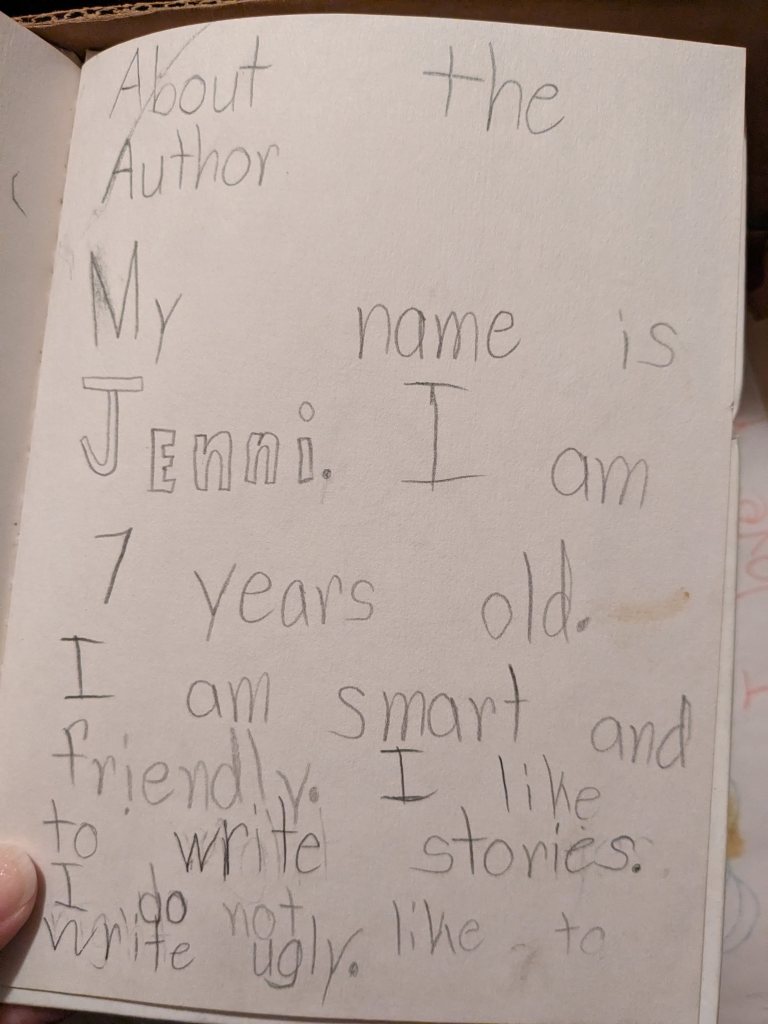 About the
Author
My name is
Jenni. I am
7 years old.
I am smart and
friendly. I like
to write stories.
I do not like to
write ugly.